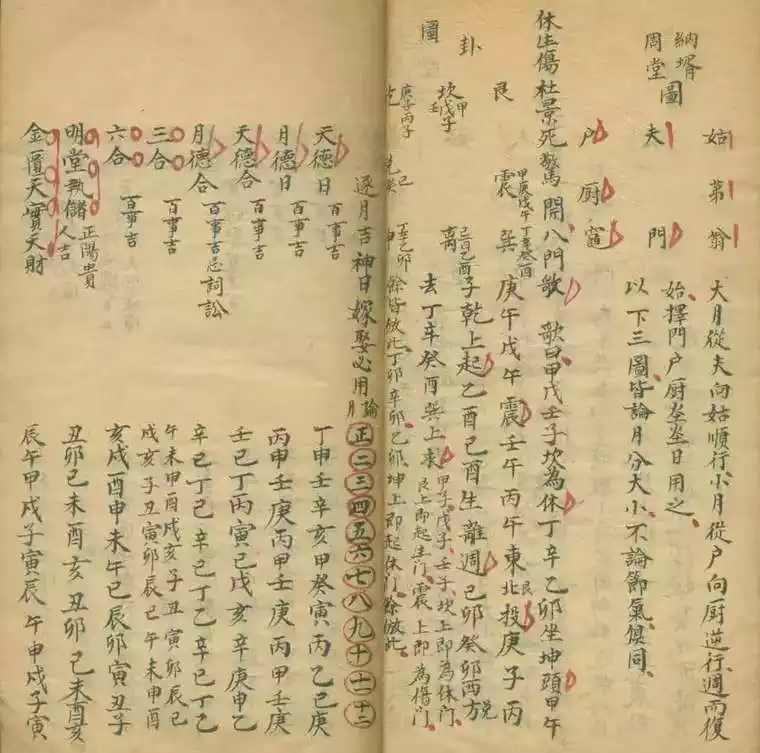 納壻周堂圖
姑 第 翁
夫 門
户 厨 竈
大月從夫向姑順行小月從户向厨逆行週而復
始擇門户厨灶日用之
以下三圖皆論月分大小不論節氣俱同
休生傷杜景死驚開八門歌 歌曰甲戊壬子坎為休丁辛乙卯坐坤頭甲午
艮 震 甲庚戊午 巽 丁辛癸酉 庚午戊午震壬午丙午東北艮投庚子丙
卦 坎 甲戊子壬 离 己酉乙酉 子乾上起乙酉己酉生離週己卯癸卯西方兌
去丁辛癸酉巽上求 甲子戊子壬子坎上即為休門
艮上即起生門震上即為傷門
圖 乾 庚子丙子 兌 己癸 坤 丁辛乙卯 餘皆倣此丁卯辛卯乙卯坤上即起休門餘倣此
逐月吉神日嫁娶必用 論月 正二三四五六七八九十十一十二
天德日 百事吉 丁申壬辛亥甲癸寅丙乙巳庚
月德日 百事吉 丙甲壬庚丙甲壬庚丙甲壬庚
天德合 百事吉 壬巳丁丙寅己戊亥辛庚申乙
月德合 百事吉忌詞訟 辛己丁乙辛己丁乙辛己丁乙
三合 百事吉 午未申酉戌亥子丑寅卯辰巳
戌亥子丑寅卯辰巳午未申酉
六合 百事吉 亥戌酉申未午巳辰卯寅丑子
明堂執儲 正陽貴人吉 丑卯巳未酉亥丑卯巳未酉亥
金匱天寶天財 辰午申戌子寅辰午申戌子寅